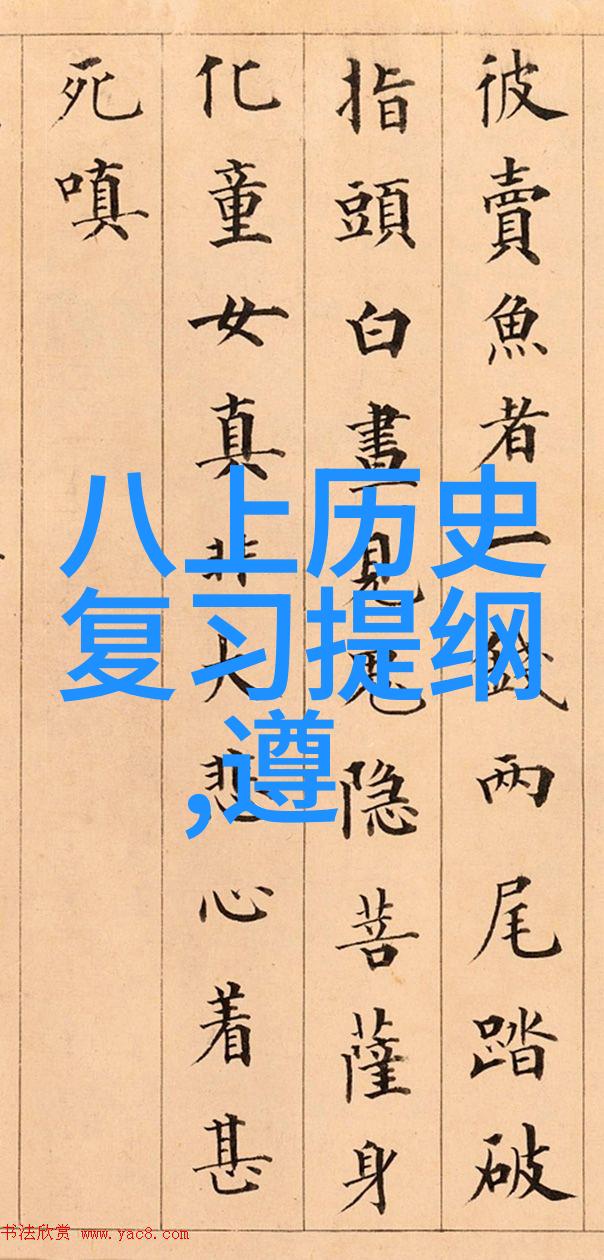 彼賣魚者一錢兩尾踏破
指頭白晝見鬼隐菩薩身
化童女真非大悲心着甚
死嗔
八上历史
复习提纲
,遵
书法欣赏 www.yac8.com